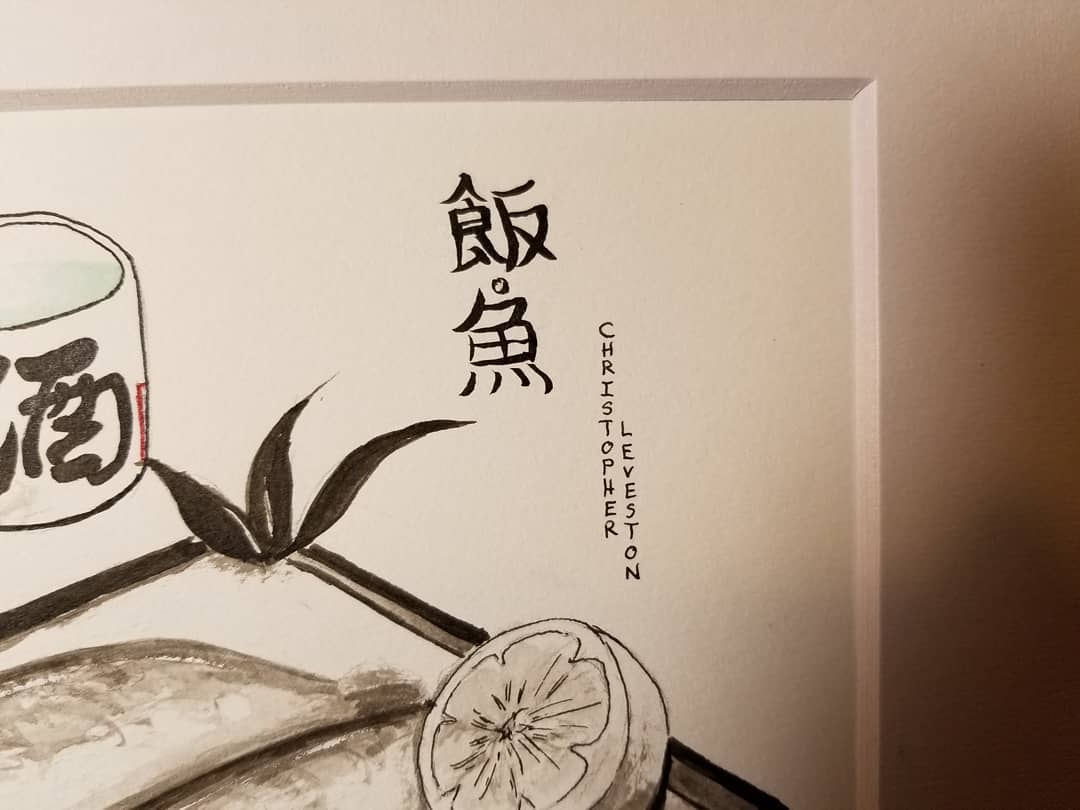 飯・魚
CHRISTOPHER
LEVESTON
酒